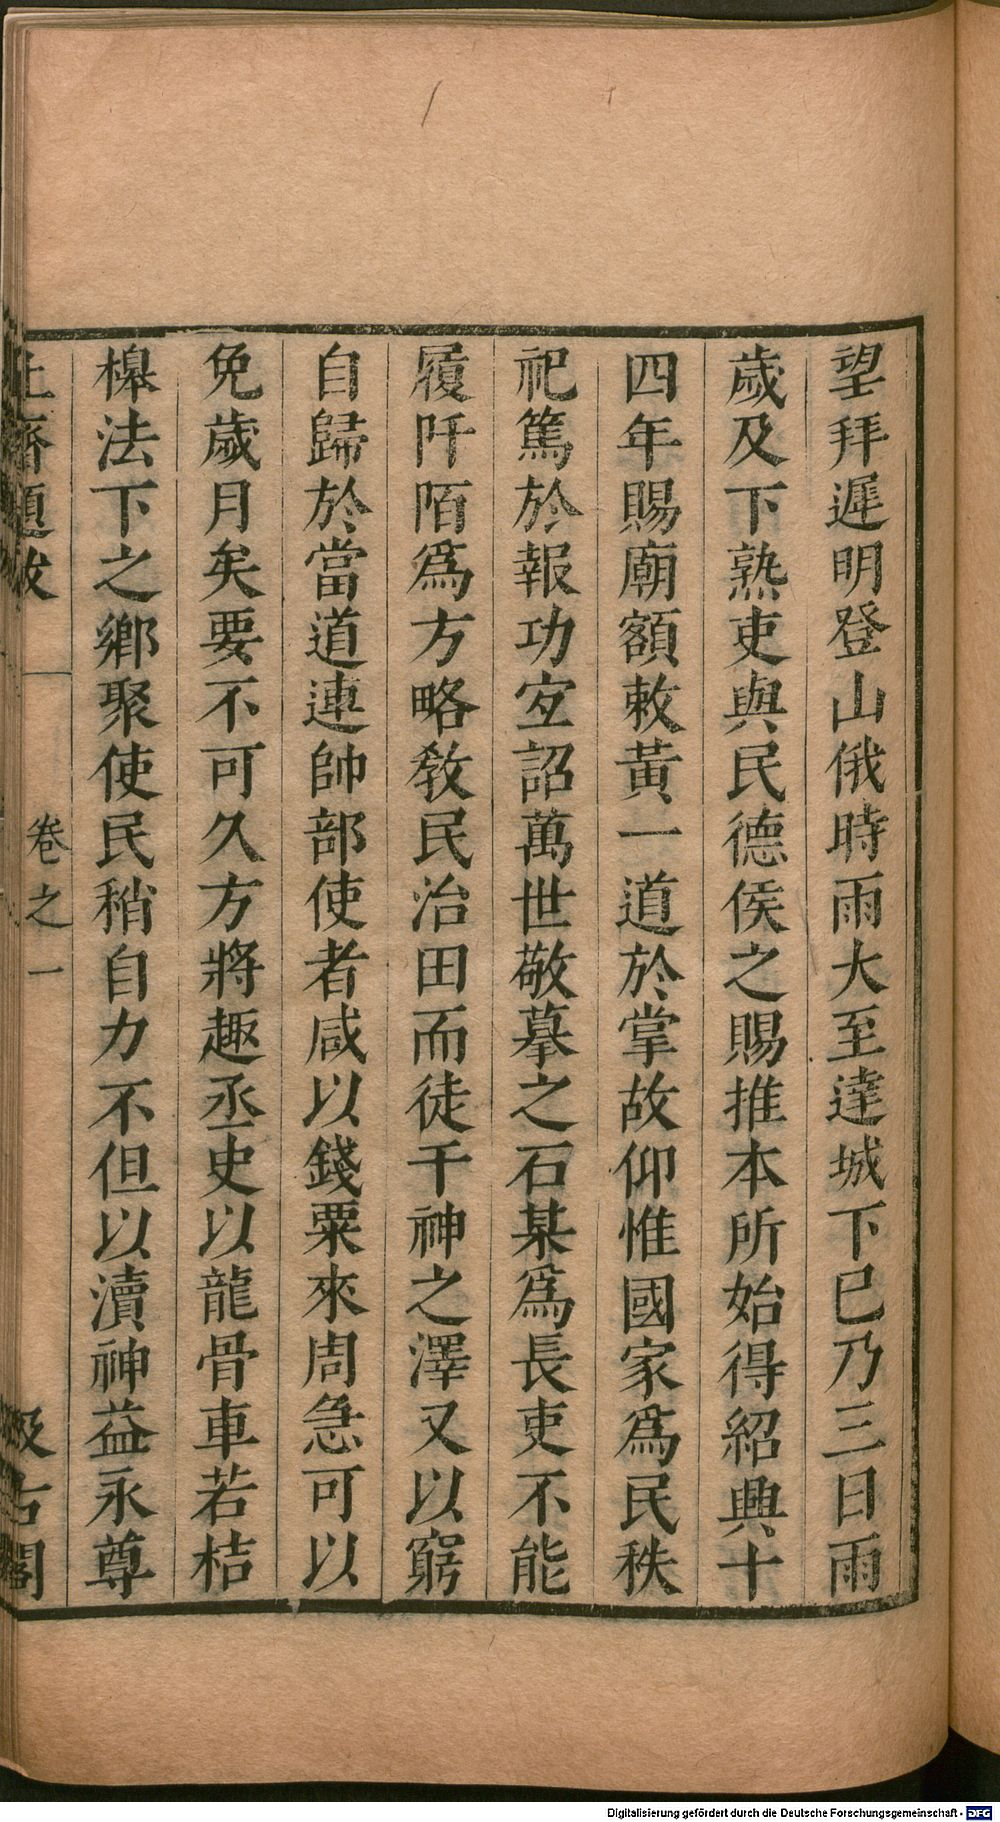 望拜遲明登山俄時雨大至達城下已乃三日雨
歲及下熟吏與民德侯之賜推本所始得紹興十
四年賜廟額敕黃一道於掌故仰惟國家爲民秩
祀篤於報功宐詔萬世敬摹之石某爲長吏不能
履阡陌爲方略敎民治田而徒干神之澤又以窮
自歸於當道連帥部使者咸以錢粟來周急可以
免歲月矣要不可久方將趣丞史以龍骨車若桔
橰法下之鄉聚使民稍自力不但以瀆神益永尊
止齋題跋 卷之一 汲古閣
Digitalisierung gefördert durch die Deutsche Forschungsgemeinschaft - DFG